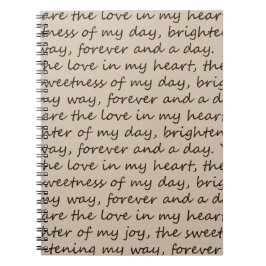 are the love in my hear
tness of my day, brighten
way, forever and a day.
he love in my heart, the
sweetness of my day, brigh
my way, forever and a d
are the love in my hear
hter of my day, brighten
way, forever and a day. Y
the love in my heart, the
sweetness of my day, brigh
my way, forever and a da
are the love in my hear
hter of my joy, the sweet
etening my way, forever